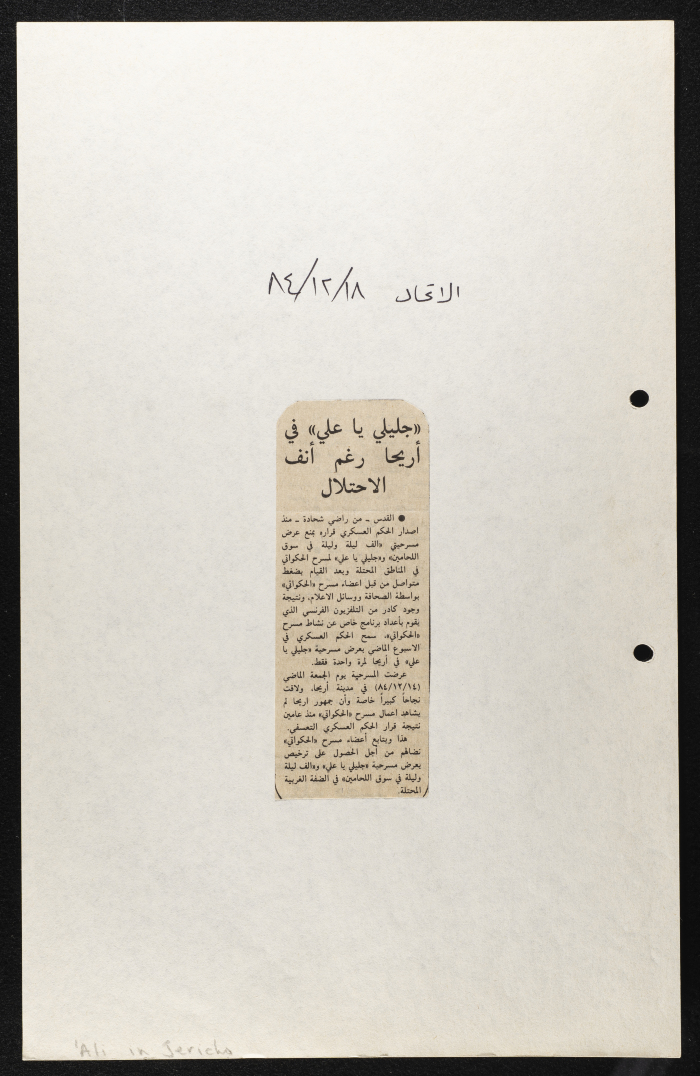 الاتحاد ٨٤/١٢/١٨
«جليلي يا علي» في
أريحا رغم أنف
الاحتلال
● القدس ـ من راضي شحادة ـ منذ
اصدار الحكم العسكري قراره بمنع عرض
مسرحيتي «الف ليلة وليلة في سوق
اللحامين» و«جليلي يا علي» لمسرح الحكواتي
في المناطق المحتلة وبعد القيام بضغط
متواصل من قبل اعضاء مسرح «الحكواتي»
بواسطة الصحافة ووسائل الاعلام، ونتيجة
وجود كادر من التلفزيون الفرنسي الذي
يقوم بأعداد برنامج خاص عن نشاط مسرح
«الحكواتي»، سمح الحكم العسكري في
الاسبوع الماضي بعرض مسرحية «جليلي يا
علي» في أريحا لمرة واحدة فقط.
عرضت المسرحية يوم الجمعة الماضي
(٨٤/١٢/١٤) في مدينة أريحا، ولاقت
نجاحاً كبيراً خاصة وأن جمهور اريحا لم
يشاهد اعمال مسرح «الحكواتي» منذ عامين
نتيجة قرار الحكم العسكري التعسفي.
هذا ويتابع أعضاء مسرح «الحكواتي»
نضالهم من أجل الحصول على ترخيص
بعرض مسرحية «جليلي يا علي» و«الف ليلة
وليلة في سوق اللحامين» في الضفة الغربية
المحتلة.
'Ali in Jericho